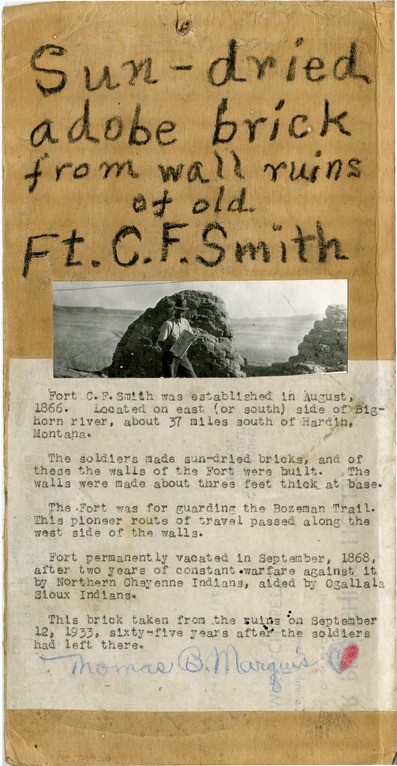 Sun-dried
adobe brick
from wall ruins
of old
Ft. C.F. Smith
Fort C.F. Smith was established in August,
1866. Located on east (or south) side of Big-
horn river, about 37 miles south of Hardin,
Montana.
The soldiers made sun-dried bricks, and of
these the walls of the Fort were built. The
walls were made about three feet thick at base.
The Fort was for guarding the Bozeman Trail.
This pioneer route of travel passed along the
west side of the walls.
Fort permanently vacated in September, 1868,
after two years of constant warfare against it
by Northern Cheyenne Indians, aided by Ogallala
Sioux Indians.
This brick taken from the ruins on September
12, 1933, sixty-five years after the soldiers
had left there.
Thomas B. Marquis